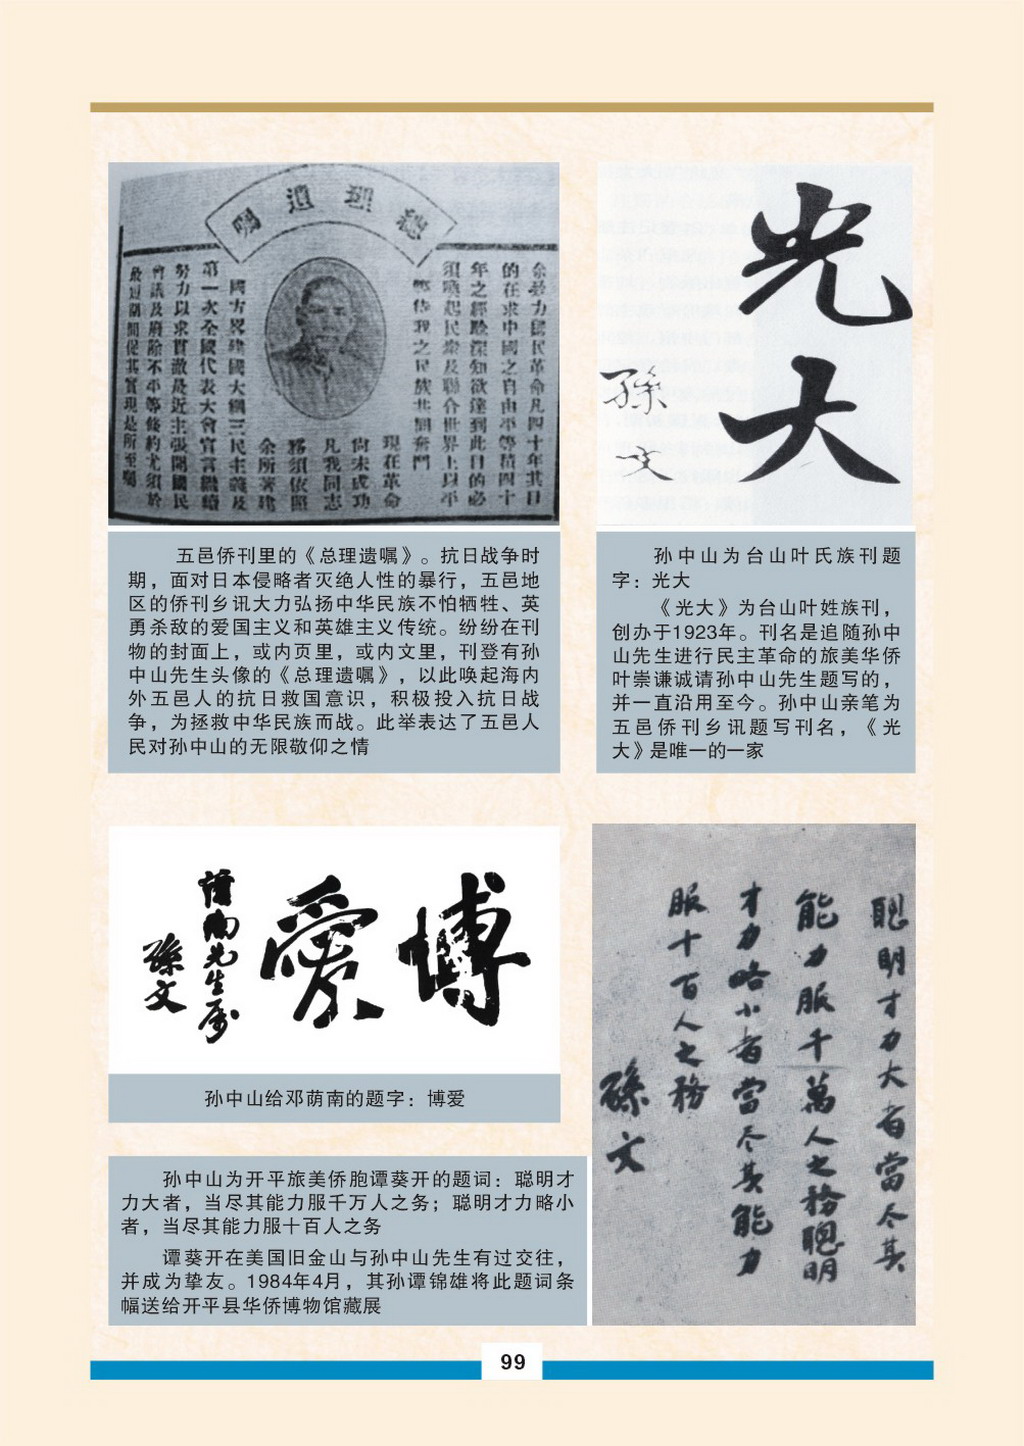 總理遺囑
余致力國民革命凡四十年其目
的在求中國之自由平等積四十
年之經驗深知欲達到此目的必
須喚起民衆及聯合世界上以平
等待我之民族共同奮鬥
現在革命
尚未成功
凡我同志
務須依照
余所著建
國方畧建國大綱三民主義及
第一次全國代表大會宣言繼續
努力以求貫澈最近主張開國民
會議及廢除不平等條約尤須於
最短期間促其實現是所至囑
光大
孫文
五邑侨刊里的《总理遗嘱》。抗日战争时
期，面对日本侵略者灭绝人性的暴行，五邑地
区的侨刊乡讯大力弘扬中华民族不怕牺牲、英
勇杀敌的爱国主义和英雄主义传统。纷纷在刊
物的封面上，或内页里，或内文里，刊登有孙
中山先生头像的《总理遗嘱》，以此唤起海内
外五邑人的抗日救国意识，积极投入抗日战
争，为拯救中华民族而战。此举表达了五邑人
民对孙中山的无限敬仰之情
孙中山为台山叶氏族刊题
字：光大
《光大》为台山叶姓族刊，
创办于1923年。刊名是追随孙中
山先生进行民主革命的旅美华侨
叶崇谦诚请孙中山先生题写的，
并一直沿用至今。孙中山亲笔为
五邑侨刊乡讯题写刊名，《光
大》是唯一的一家
博愛
南先生属
孫文
孙中山给邓荫南的题字：博爱
聰明才力大者當尽其
能力服千萬人之務聰明
才力略小者當尽其能力
服十百人之務
孫文
孙中山为开平旅美侨胞谭葵开的题词：聪明才
力大者，当尽其能力服千万人之务；聪明才力略小
者，当尽其能力服十百人之务
谭葵开在美国旧金山与孙中山先生有过交往，
并成为挚友。1984年4月，其孙谭锦雄将此题词条
幅送给开平县华侨博物馆藏展
99